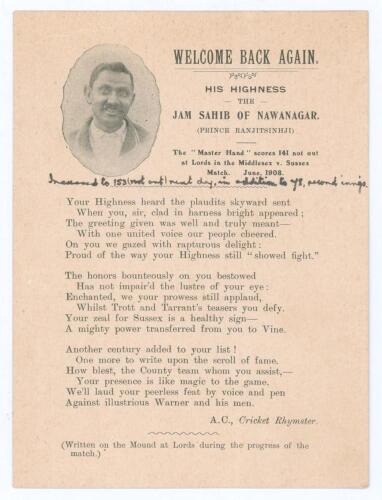 WELCOME BACK AGAIN.
HIS HIGHNESS
— THE —
JAM SAHIB OF NAWANAGAR.
(PRINCE RANJITSINHJI)
The "Master Hand" scores 141 not out
at Lords in the Middlesex v. Sussex
Match. June, 1908.
Increased to 153 (not out) next day, in addition to 78, second innings.
Your Highness heard the plaudits skyward sent
When you, sir, clad in harness bright appeared;
The greeting given was well and truly meant—
With one united voice our people cheered.
On you we gazed with rapturous delight:
Proud of the way your Highness still "showed fight."
The honors bounteously on you bestowed
Has not impair'd the lustre of your eye:
Enchanted, we your prowess still applaud,
Whilst Trott and Tarrant's teasers you defy.
Your zeal for Sussex is a healthy sign—
A mighty power transferred from you to Vine.
Another century added to your list!
One more to write upon the scroll of fame.
How blest, the County team whom you assist,—
Your presence is like magic to the game.
We'll laud your peerless feat by voice and pen
Against illustrious Warner and his men.
A.C., Cricket Rhymster.
(Written on the Mound at Lords during the progress of the
match.)